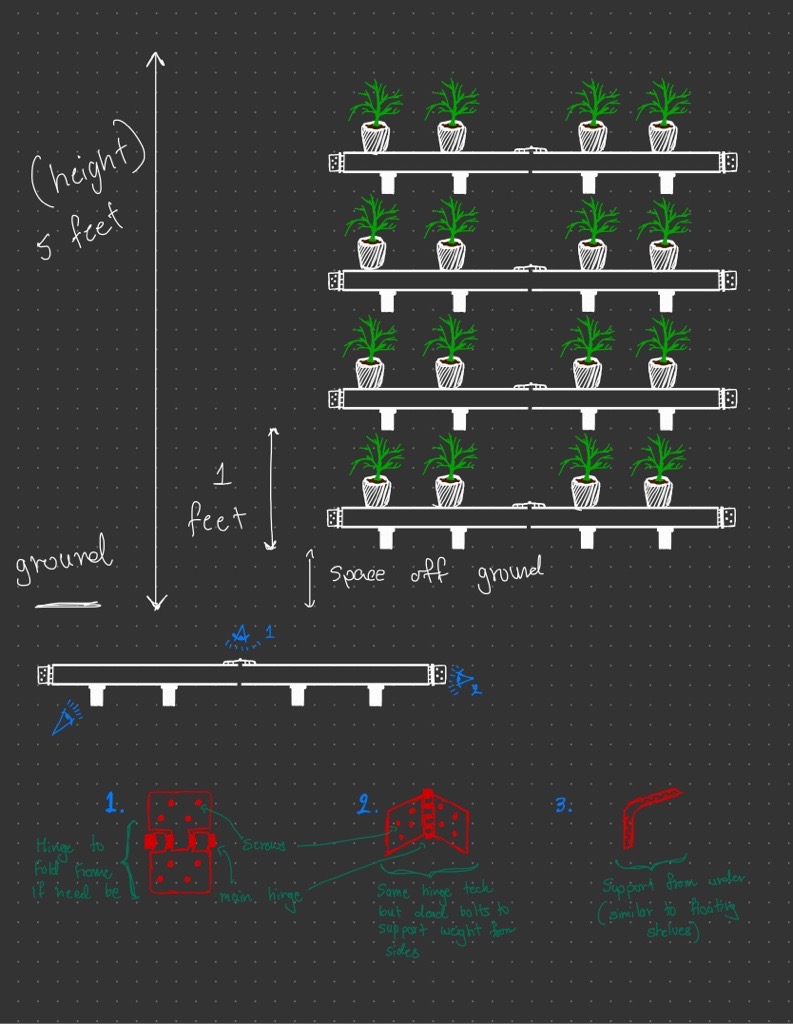 (height)
5 feet
1
feet
ground
space off ground
1
2
1.
Hinge to
fold frame
if need be
screws
main hinge
2.
Same hinge tech
but dead bolts to
support weight from
sides
3:
Support from under
(similar to floating
shelves)